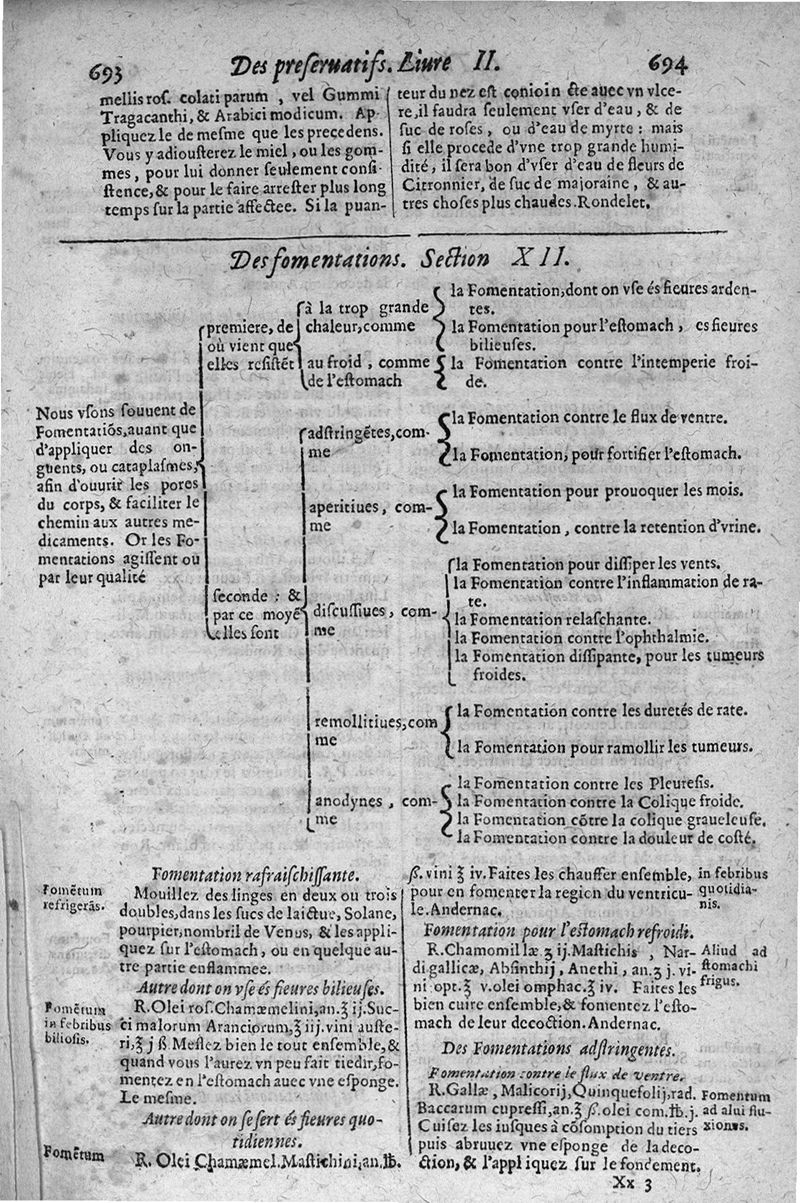 693
Des preſeruatifs. Liure II.
694
mellis roſ. colati parum , vel Gummi
Tragacanthi, & Arabici modicum. Ap-
pliquez le de meſme que les precedens.
Vous y adiouſterez le miel, ou les gom-
mes, pour lui donner ſeulement conſi-
ſtence, & pour le faire arreſter plus long
temps ſur la partie affectee. Si la puan-
teur du nez eſt conioin cte auec vn vlce-
re, il faudra ſeulement vſer d'eau, & de
ſuc de roſes, ou d'eau de myrte : mais
ſi elle procede d'vne trop grande humi-
dité, il ſera bon d'vſer d'eau de fleurs de
Citronnier, de ſuc de majoraine, & au-
tres choſes plus chaudes. Rondelet.
Des fomentations. Section XII.
Nous vſons ſouuent de
Fomentatiõs, auant que
d'appliquer des on-
guents, ou cataplaſmes,
afin d'ouurir les pores
du corps, & faciliter le
chemin aux autres me-
dicaments. Or les Fo-
mentations agiſſent ou
par leur qualité
premiere, de
où vient que
elles reſiſtẽt
à la trop grande
chaleur, comme
la Fomentation, dont on vſe és fieures arden-
tes.
la Fomentation pour l'eſtomach, es fieures
bilieuſes.
au froid, comme
de l'eſtomach
la Fomentation contre l'intemperie froi-
de.
ſeconde : &
par ce moyẽ
elles ſont
adſtringẽtes, com-
me
la Fomentation contre le flux de ventre.
la Fomentation, pour fortifier l'eſtomach.
aperitiues, com-
me
la Fomentation pour prouoquer les mois.
la Fomentation, contre la retention d'vrine.
diſcuſſiues, com-
me
la Fomentation pour diſſiper les vents.
la Fomentation contre l'inflammation de ra-
te.
la Fomentation relaſchante.
la Fomentation contre l'ophthalmie.
la Fomentation diſſipante, pour les tumeurs
froides.
remollitiues, com
me
la Fomentation contre les duretés de rate.
la Fomentation pour ramollir les tumeurs.
anodynes, com-
me
la Fomentation contre les Pleureſis.
la Fomentation contre la Colique froide.
la Fomentation cõtre la colique graueleuſe.
la Fomentation contre la douleur de coſté.
Fomentation rafraiſchiſſante.
Fomẽtum
refrigerãs.
Mouillez des linges en deux ou trois
doubles, dans les ſucs de laictue, Solane,
pourpier, nombril de Venus, & les appli-
quez ſur l'eſtomach, ou en quelque au-
tre partie enflammee.
Autre dont on vſe és fieures bilieuſes.
Fomẽtum
in febribus
bilioſis.
R. Olei roſ. Chamæmelini, an. ℥ ij. Suc-
ci malorum Aranciorum, ℥ iij. vini auſte-
ri, ℥ j ß Meſlez bien le tout enſemble, &
quand vous l'aurez vn peu fait tiedir, fo-
mentez en l'eſtomach auec vne eſponge.
Le meſme.
Autre dont on ſe ſert és fieures quo-
tidiennes.
Fomẽtum
R. Olei Chamæmel. Maſtichini, an. ℔.
ß. vini ℥ iv. Faites les chauffer enſemble,
pour en fomenter la region du ventricu-
le. Andernac.
in febribus
quotidia-
nis.
Fomentation pour l'eſtomach refroidi.
R. Chamomillæ ℥ ij. Maſtichis, Nar-
di gallicæ, Abſinthij, Anethi, an. ʒ j. vi-
ni opt. ℥ v. olei omphac. ℥ iv. Faites les
bien cuire enſemble, & fomentez l'eſto-
mach de leur decoction. Andernac.
Aliud ad
ſtomachi
frigus.
Des Fomentations adſtringentes.
Fomentation contre le flux de ventre.
R. Gallæ, Malicorij, Quinquefolij, rad.
Baccarum cupreſſi, an. ℥ ß. olei com. ℔. j.
Cuiſez les iuſques à cõſomption du tiers
puis abruuez vne eſponge de la deco-
ction, & l'appliquez ſur le fondement.
Fomentum
ad alui flu-
xiones.
Xx 3